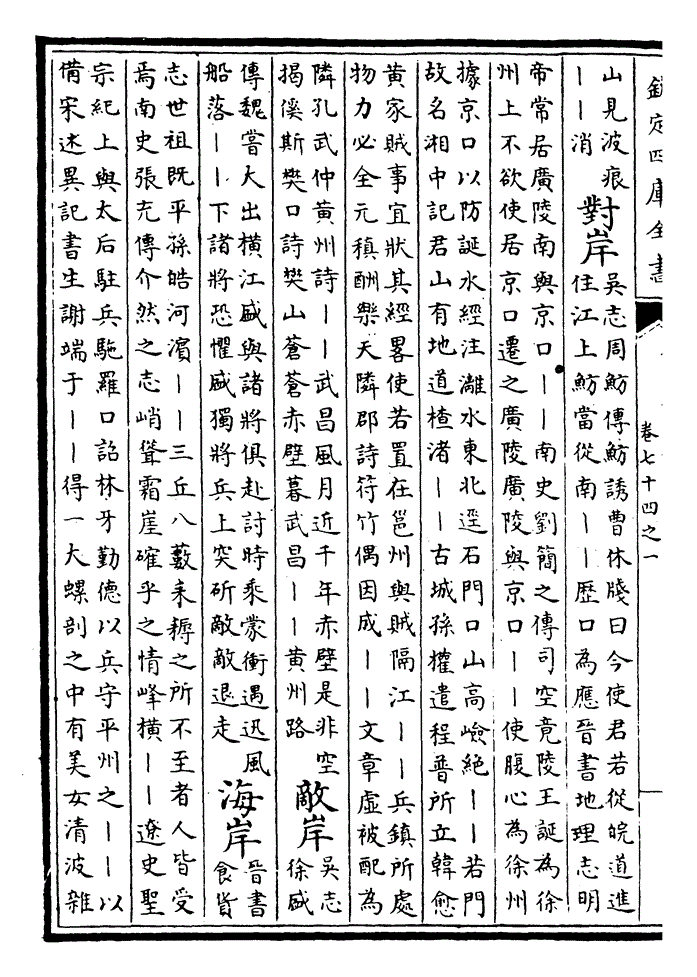 欽定四庫全書
卷七十四之一
山見波痕
——消
對岸
吳志周魴傳魴誘曹休牋曰今使君若從皖道進
住江上魴當從南——歷口為應晉書地理志明
帝常居廣陵南與京口——南史劉簡之傳司空竟陵王誕為徐
州上不欲使居京口遷之廣陵廣陵與京口——使腹心為徐州
據京口以防誕水經注灕水東北逕石門口山高嶮絕——若門
故名湘中記君山有地道楂渚——古城孫權遣程普所立韓愈
黃家賊事宜狀其經畧使若置在邕州與賊隔江——兵鎮所處
物力必全元稹酬樂天隣郡詩符竹偶因成——文章虛被配為
隣孔武仲黃州詩——武昌風月近千年赤壁是非空
揭傒斯樊口詩樊山蒼蒼赤壁暮武昌——黃州路
敵岸
吳志
徐盛
傳魏嘗大出橫江盛與諸將俱赴討時乘蒙衝遇迅風
船落——下諸將恐懼盛獨將兵上突斫敵敵退走
海岸
晉書
食貨
志世祖既平孫皓河濱——三丘八藪耒耨之所不至者人皆受
焉南史張充傳介然之志峭聳霜崖確乎之情峰橫——遼史聖
宗紀上與太后駐兵駞羅口詔林牙勤德以兵守平州之——以
備宋述異記書生謝端于——得一大螺剖之中有美女清波雜